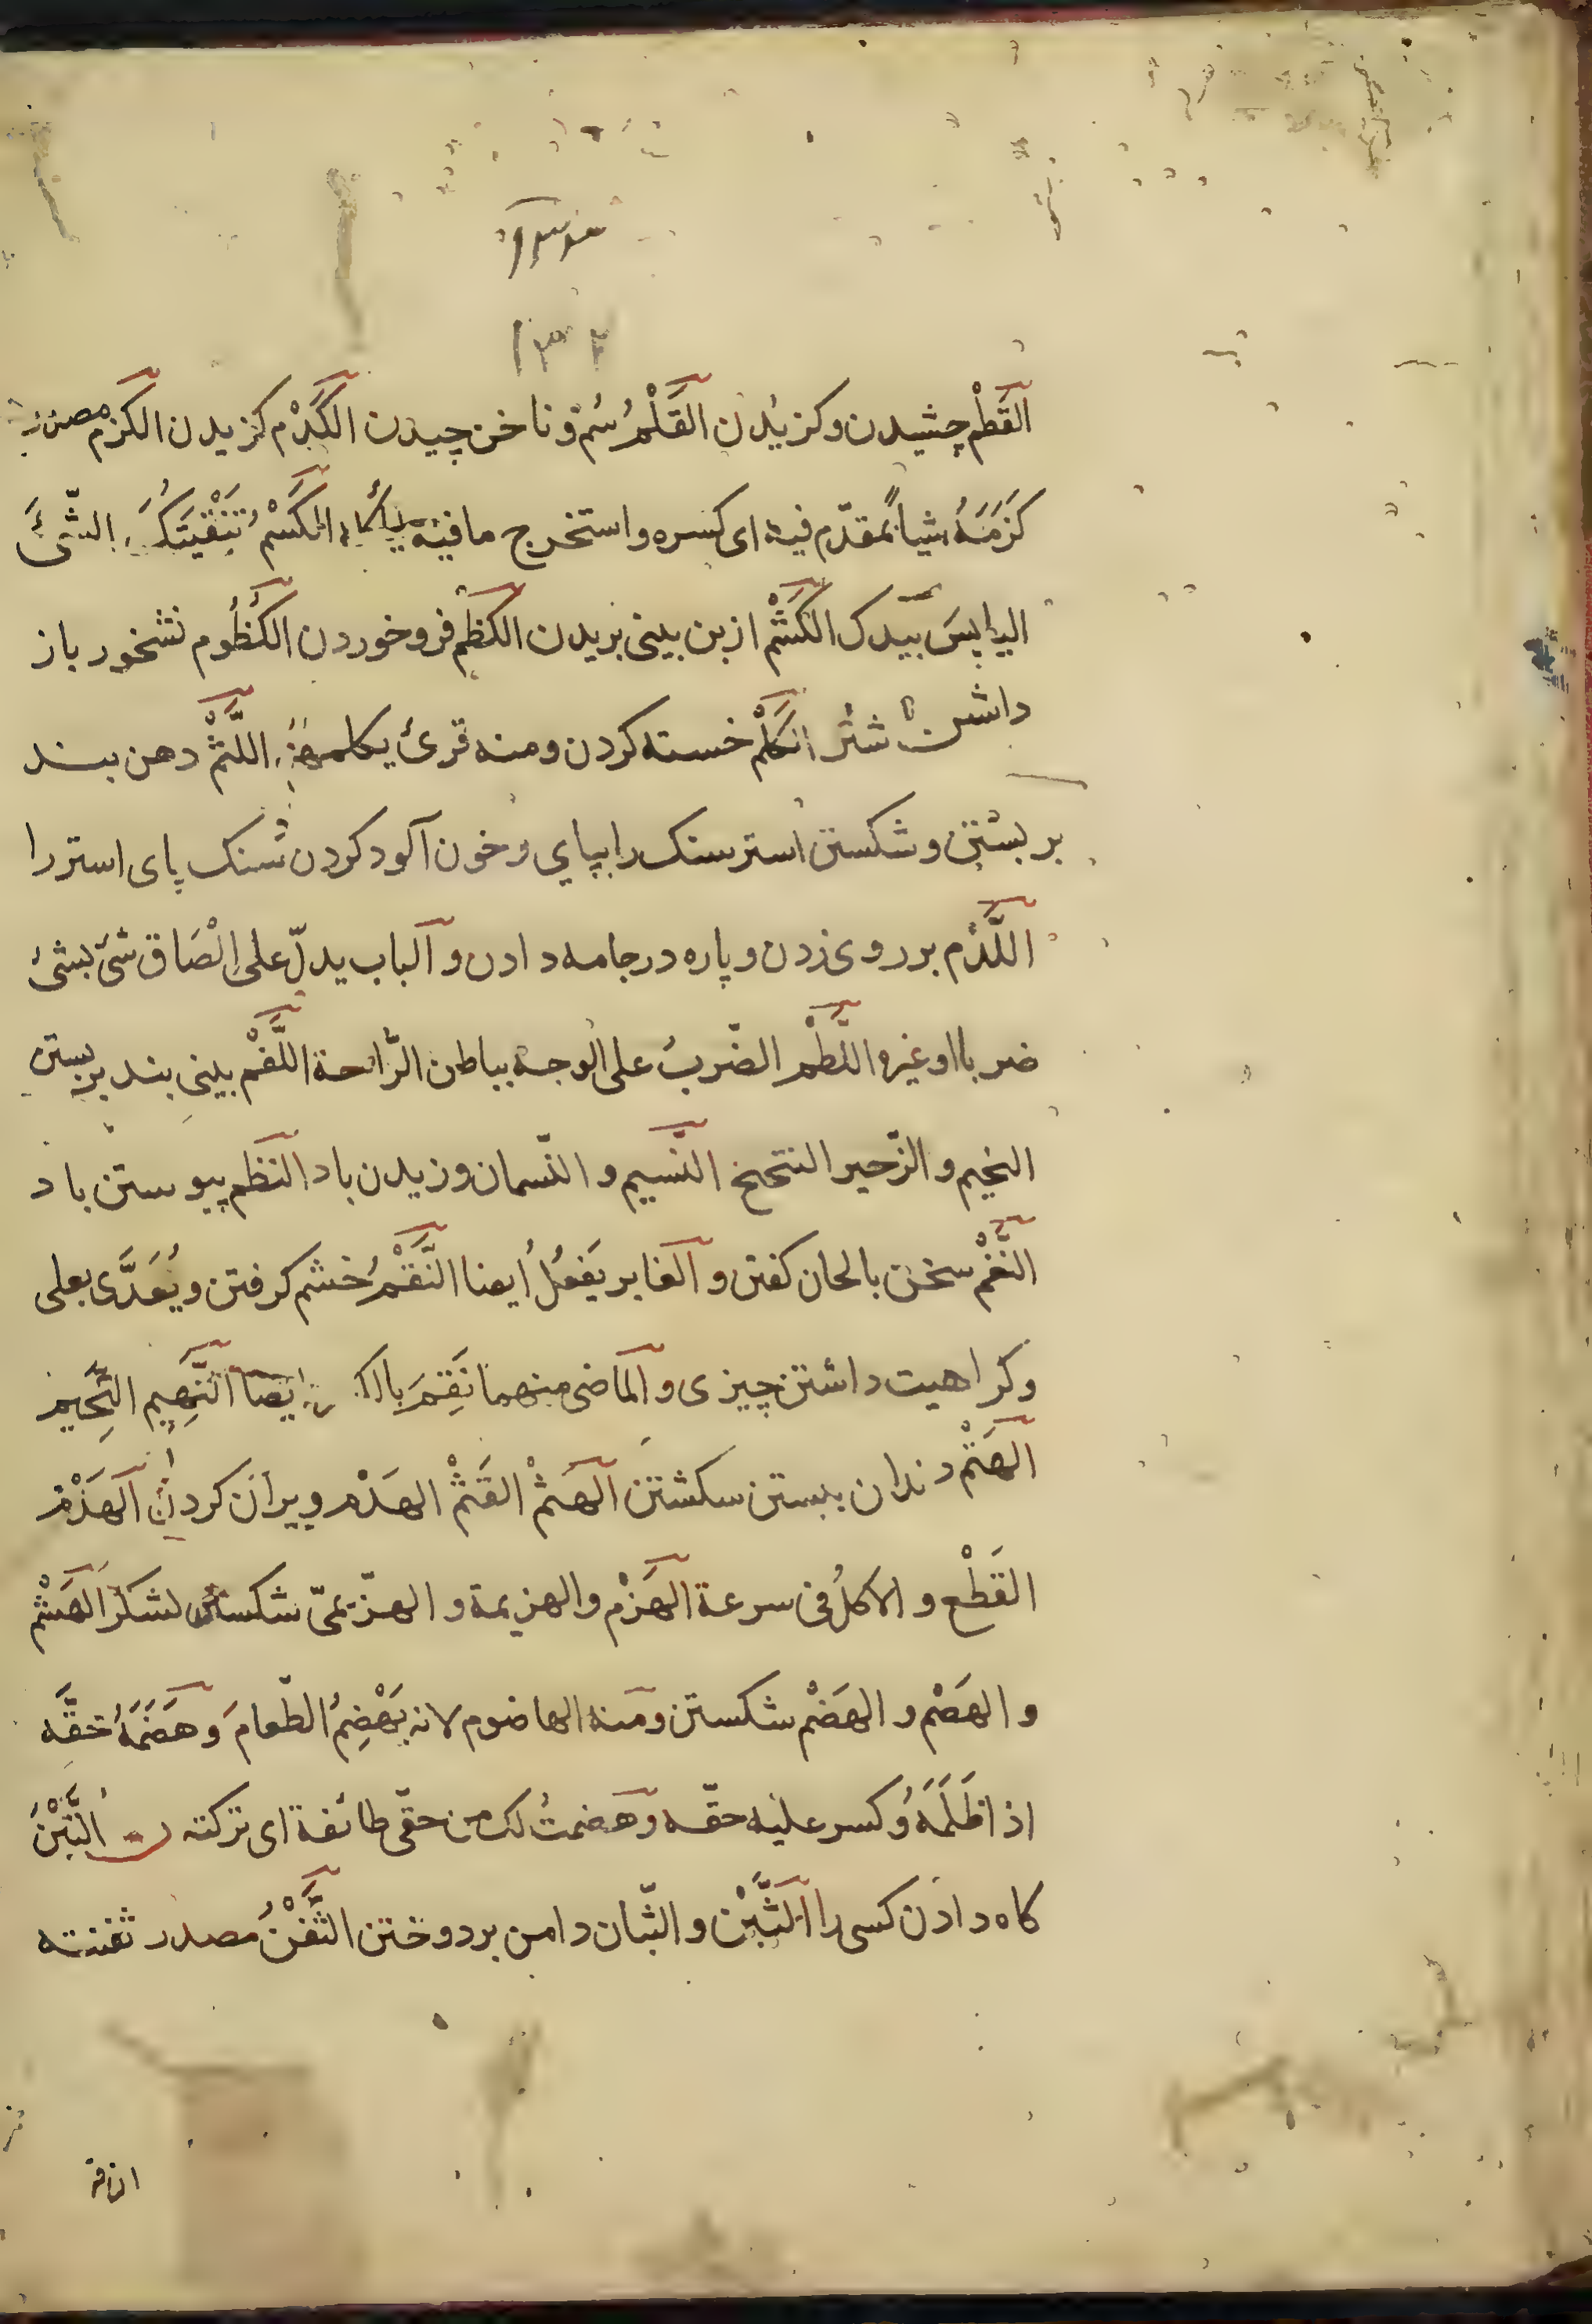 القَطْم چشیدن و کزیدن القَلْمُ سُم و ناخن چیدن الکَدْم کزیدن الکزم مصدر
کَزَمَهُ شیأً بمقدّم فیه ای کسره و استخرج ما فیه لیأکله الکَسْمُ تَنْقِیَتُکَ الشّیَٔ
الیابسَ بیدک الکَشْم از بن بینی بریدن الکظْم فرو خوردن الکُظُوم نشخور باز
داشتن شتر الکَلْم خسته کردن و منه قریٔ یکلمهم اللَّثْم دهن بند
بر بستن و شکستن استر سنک را بپای و خون آلود کردن سنک پای استر را
اللَّدْم بر روی زدن و پاره در جامه دادن و الباب یدلّ علی اِلْصَاق شیٔ بشیٔ
ضربا او غیره اللَّطْم الضّربُ علی الوجه بباطن الرّاحة اللَّفْم بینی بند بر بستن
النحیم و الزّحیر التنحنح النَّسیم و النّسمان وزیدن باد النَّظم پیوستن باد
النَّغْم سخن بالحان کفتن و الغابر یَفعُلُ ایضا النَّقْمُ خشم کرفتن و یُعَدَّی بعلی
و کراهیت داشتن چیزی و الماضی منهما نَقِمَ ایضا النَّهِیم النَّحِیم
الهَتْم دندان پیستن سکشتن الهَثْم القَثْم الهَدْم ویران کردن الهَذْم
القَطْع و الاکلُ فی سرعة الهَزْم و الهزیمة و الهزّیمیّ شکستن لشکر الهَشْم
و الهَصْم و الهَضْم شکستن و منه الهاضوم لانه یَهْضِمُ الطّعامَ و هَضَمَهُ حَقَّه
اذا ظَلَمَهُ و کسر علیه حقّه و هضمتُ لک من حقّی طائفة ای ترکته ن التَّبْنُ
کاه دادن کسی را الثَّبْن و الثّبان دامن بر دوختن الثَّفْنُ مصدر ثفنته